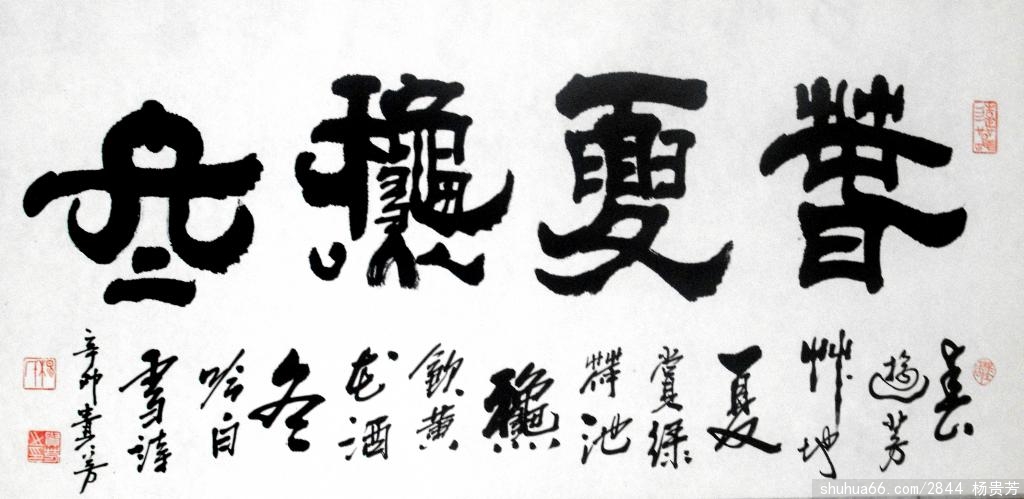 萅夏龝冬
春
遊芳
艸地
夏
賞綠
荷池
龝
飲黄
花酒
冬
吟白
雪詩
辛卯貴芳
shuhua66.com/2844 杨贵芳